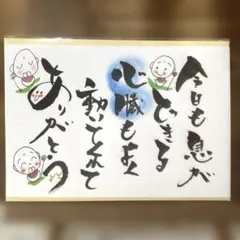 今日も息が
できる
心臓もよく
動いてくれて
ありがとう